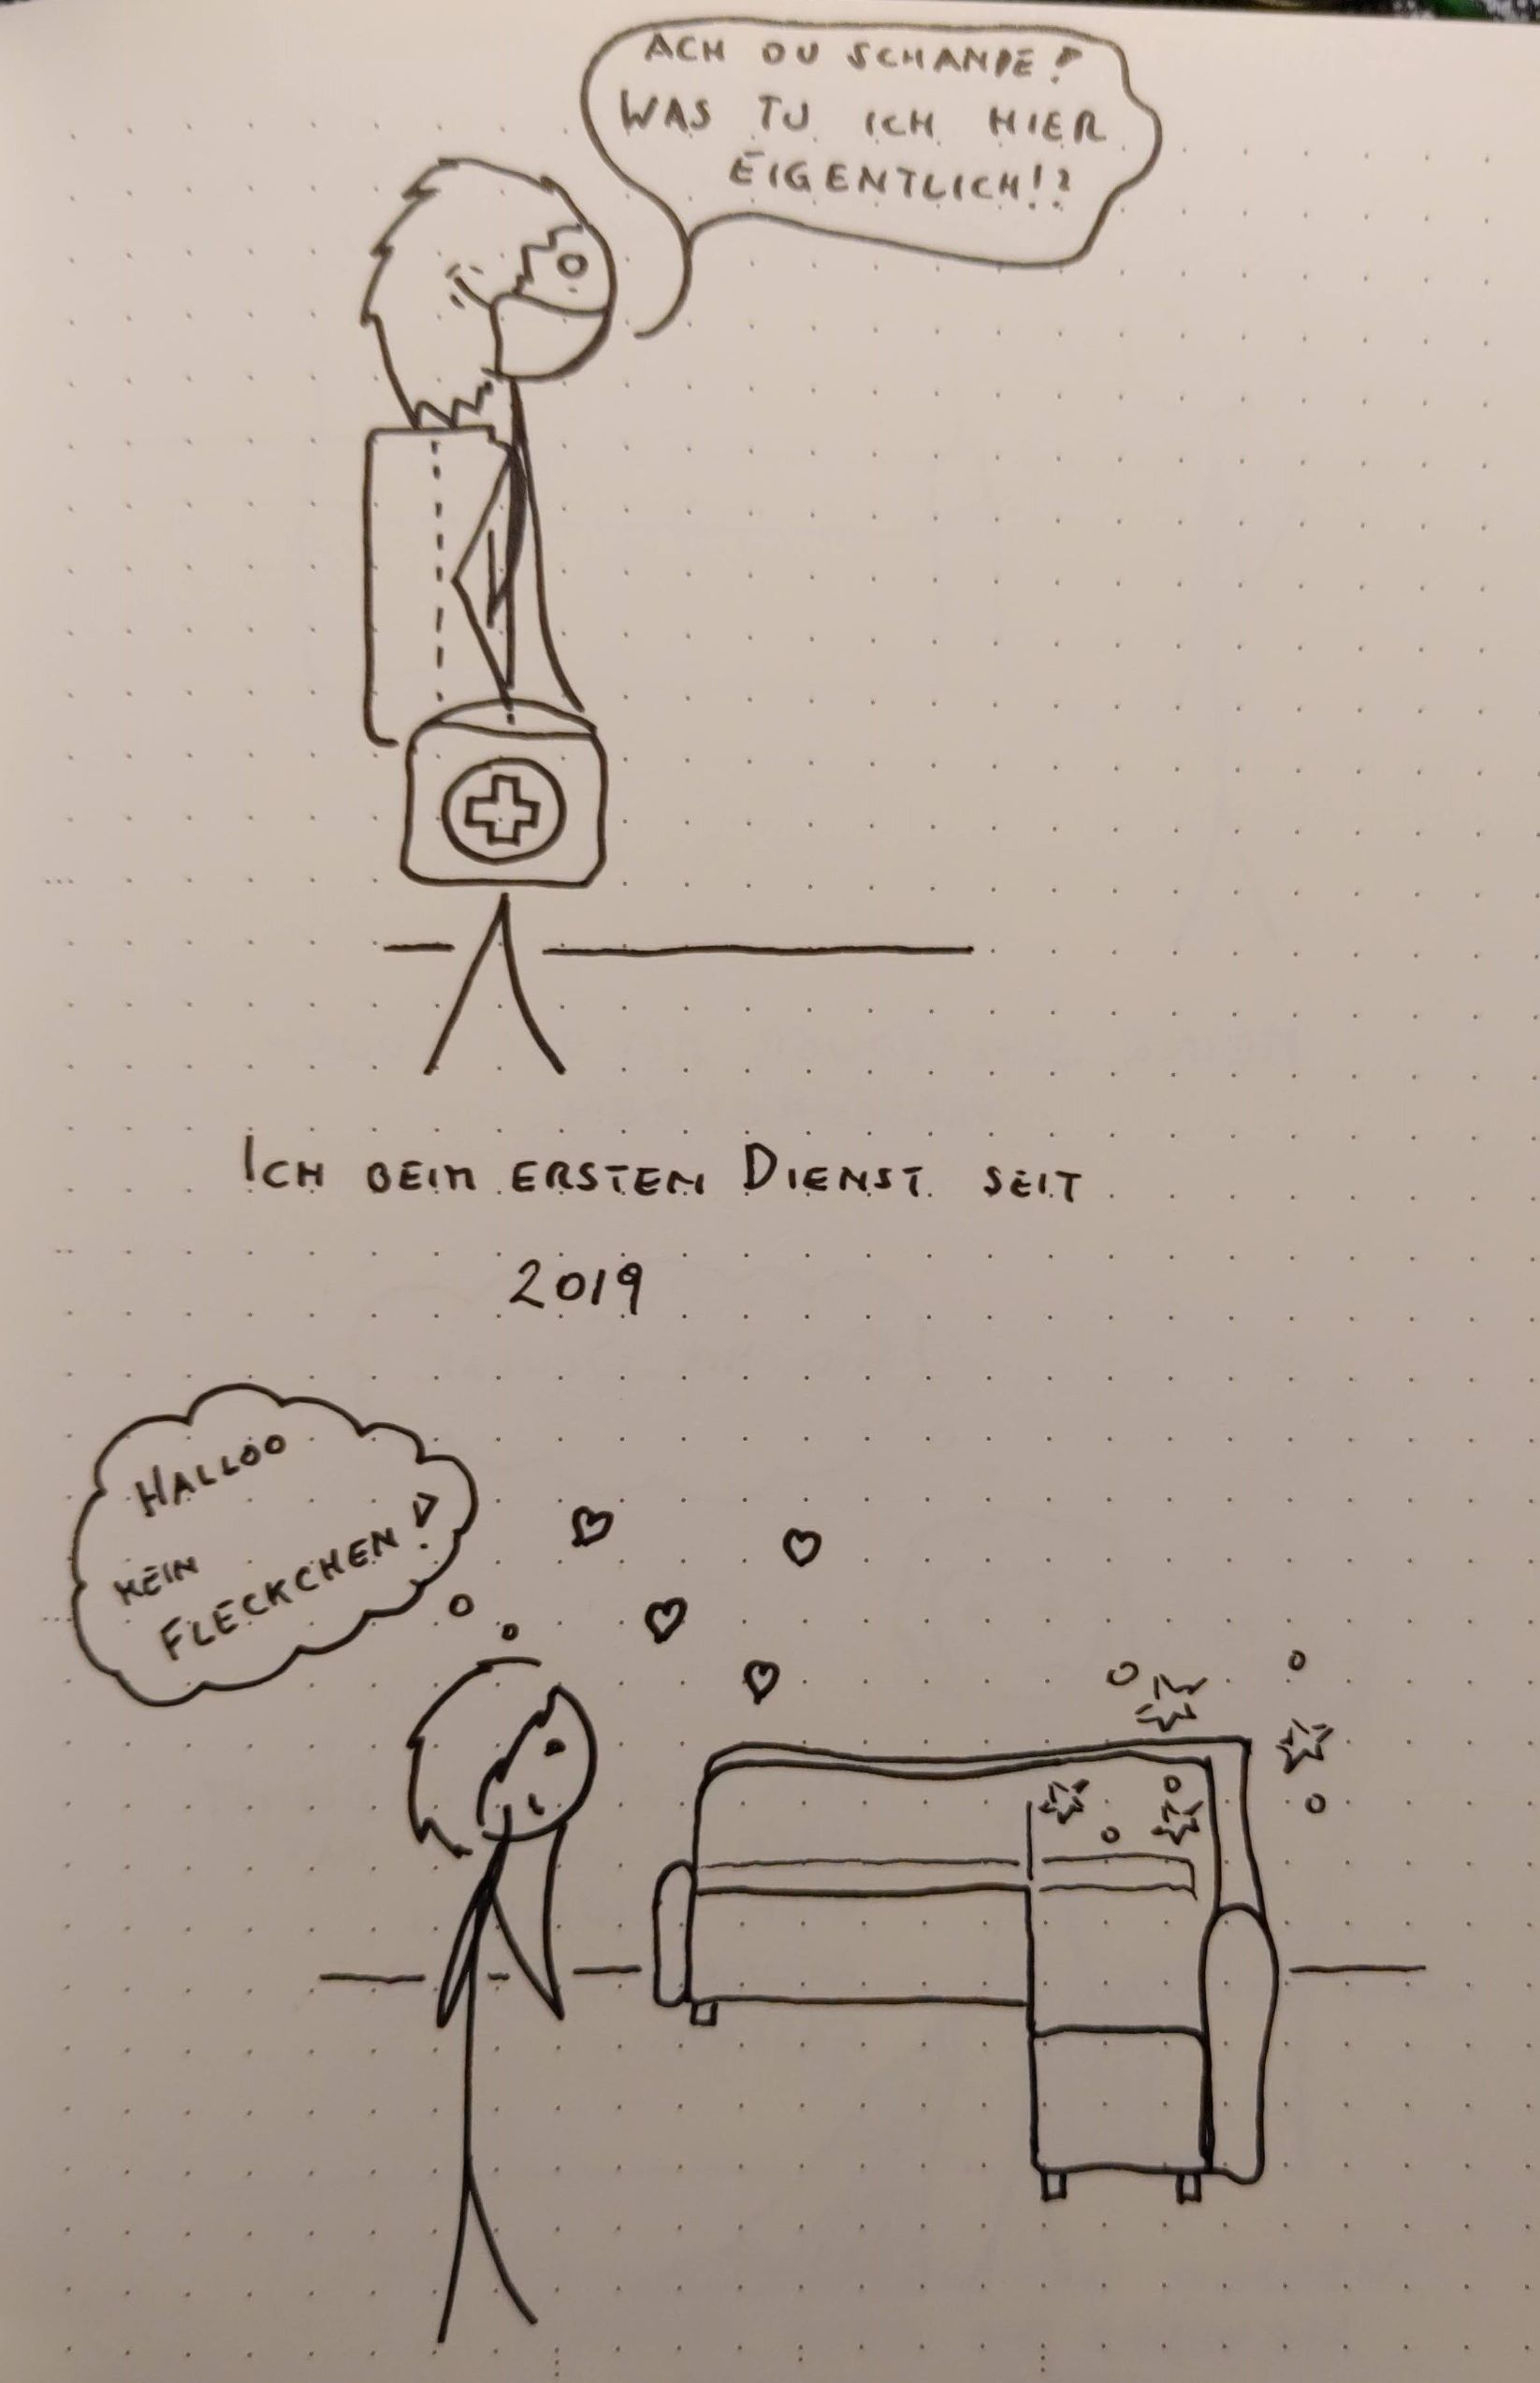 ACH DU SCHANDE!
WAS TU ICH HIER
EIGENTLICH!?
ICH BEIM ERSTEN DIENST SEIT
2019
HALLOO
MEIN
FLECKCHEN!